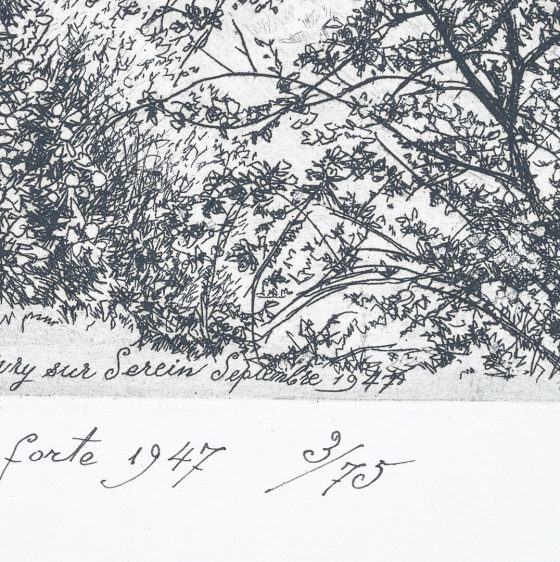 ury sur Serein Septembre 1947
forte 1947 3/75